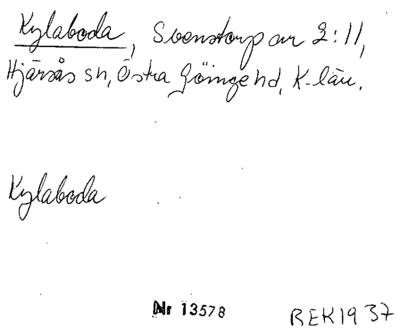 Kylaboda, Svenstorp nr 2:11,
Hjärsås sn, Östra Göinge hd, K-län.
Kylaboda
Nr 13578
BEK 1937